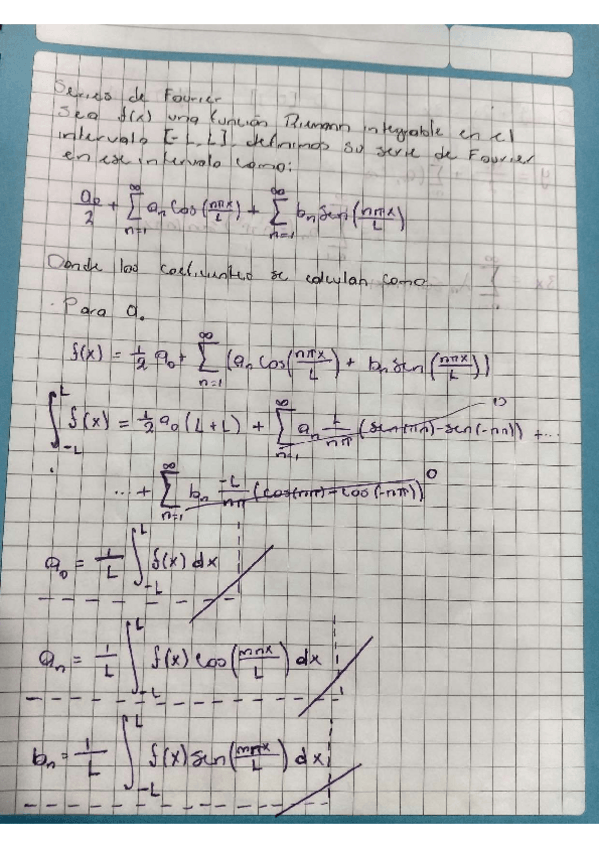 Series de Fourier
Sea f(x) una función Riemann integrable en el
intervalo [-L, L] definimos su serie de Fourier
en ese intervalo como:
a₀/2 + ∑_{n=1}^{∞} aₙ cos(nπx/L) + ∑_{n=1}^{∞} bₙ sen(nπx/L)
Donde los coeficientes se calculan como
· Para a₀
f(x) = 1/2 a₀ + ∑_{n=1}^{∞} (aₙ cos(nπx/L) + bₙ sen(nπx/L))
∫_{-L}^{L} f(x) = 1/2 a₀ (L+L) + ∑_{n=1}^{∞} aₙ L/nπ (sen(nπ) - sen(-nπ)) + ...
... + ∑_{n=1}^{∞} bₙ -L/nπ (cos(nπ) - cos(-nπ)) 0
a₀ = 1/L ∫_{-L}^{L} f(x) dx
aₙ = 1/L ∫_{-L}^{L} f(x) cos(mπx/L) dx
bₙ = 1/L ∫_{-L}^{L} f(x) sen(mπx/L) dx